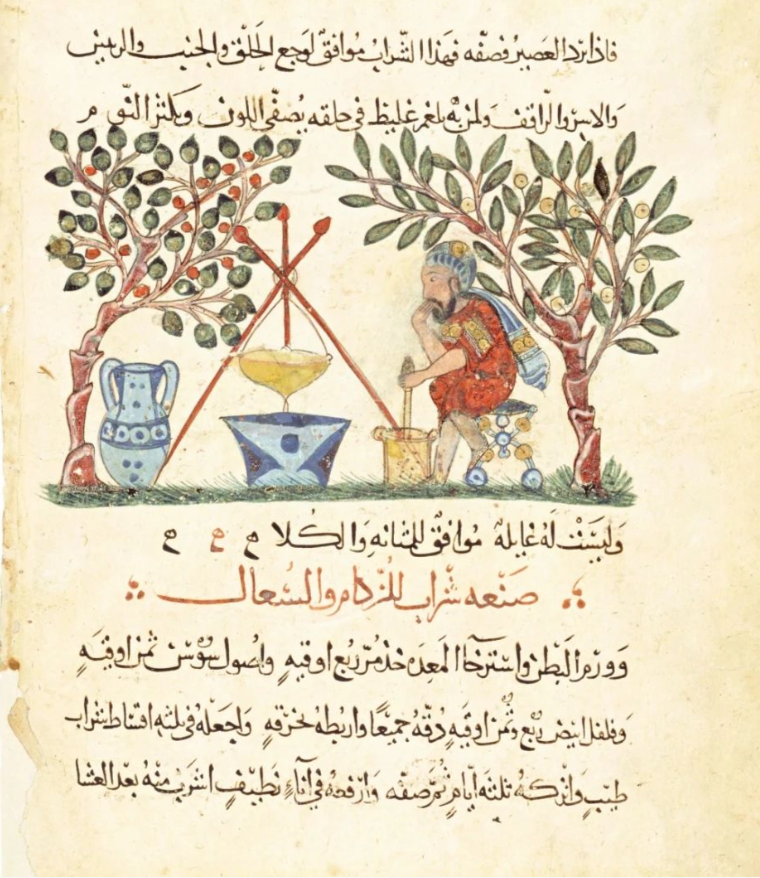 فاذا برد العصير فصفه فهذا الشراب موافق لوجع الحلق والجنب والريتين
والاسر والراقف ولمن به بلغم غليظ في حلقه يصفي اللون ويكثر النوم م
وليست له غايلة موافق للمثانه والكلا م م م
صنعه شراب للزكام والسعال
وورم البطن واسترخا المعده خذ مر ربع اوقيه واصول سوسن ثمن اوقيه
وفلفل ابيض ربع وثمن اوقيه دقه جميعا واربطه بخرقه واجعله في ثلثه اقساط شراب
طيب واتركه ثلثه ايام ثم صفه وارفعه في اناء نظيف اشرب منه بعد العشا